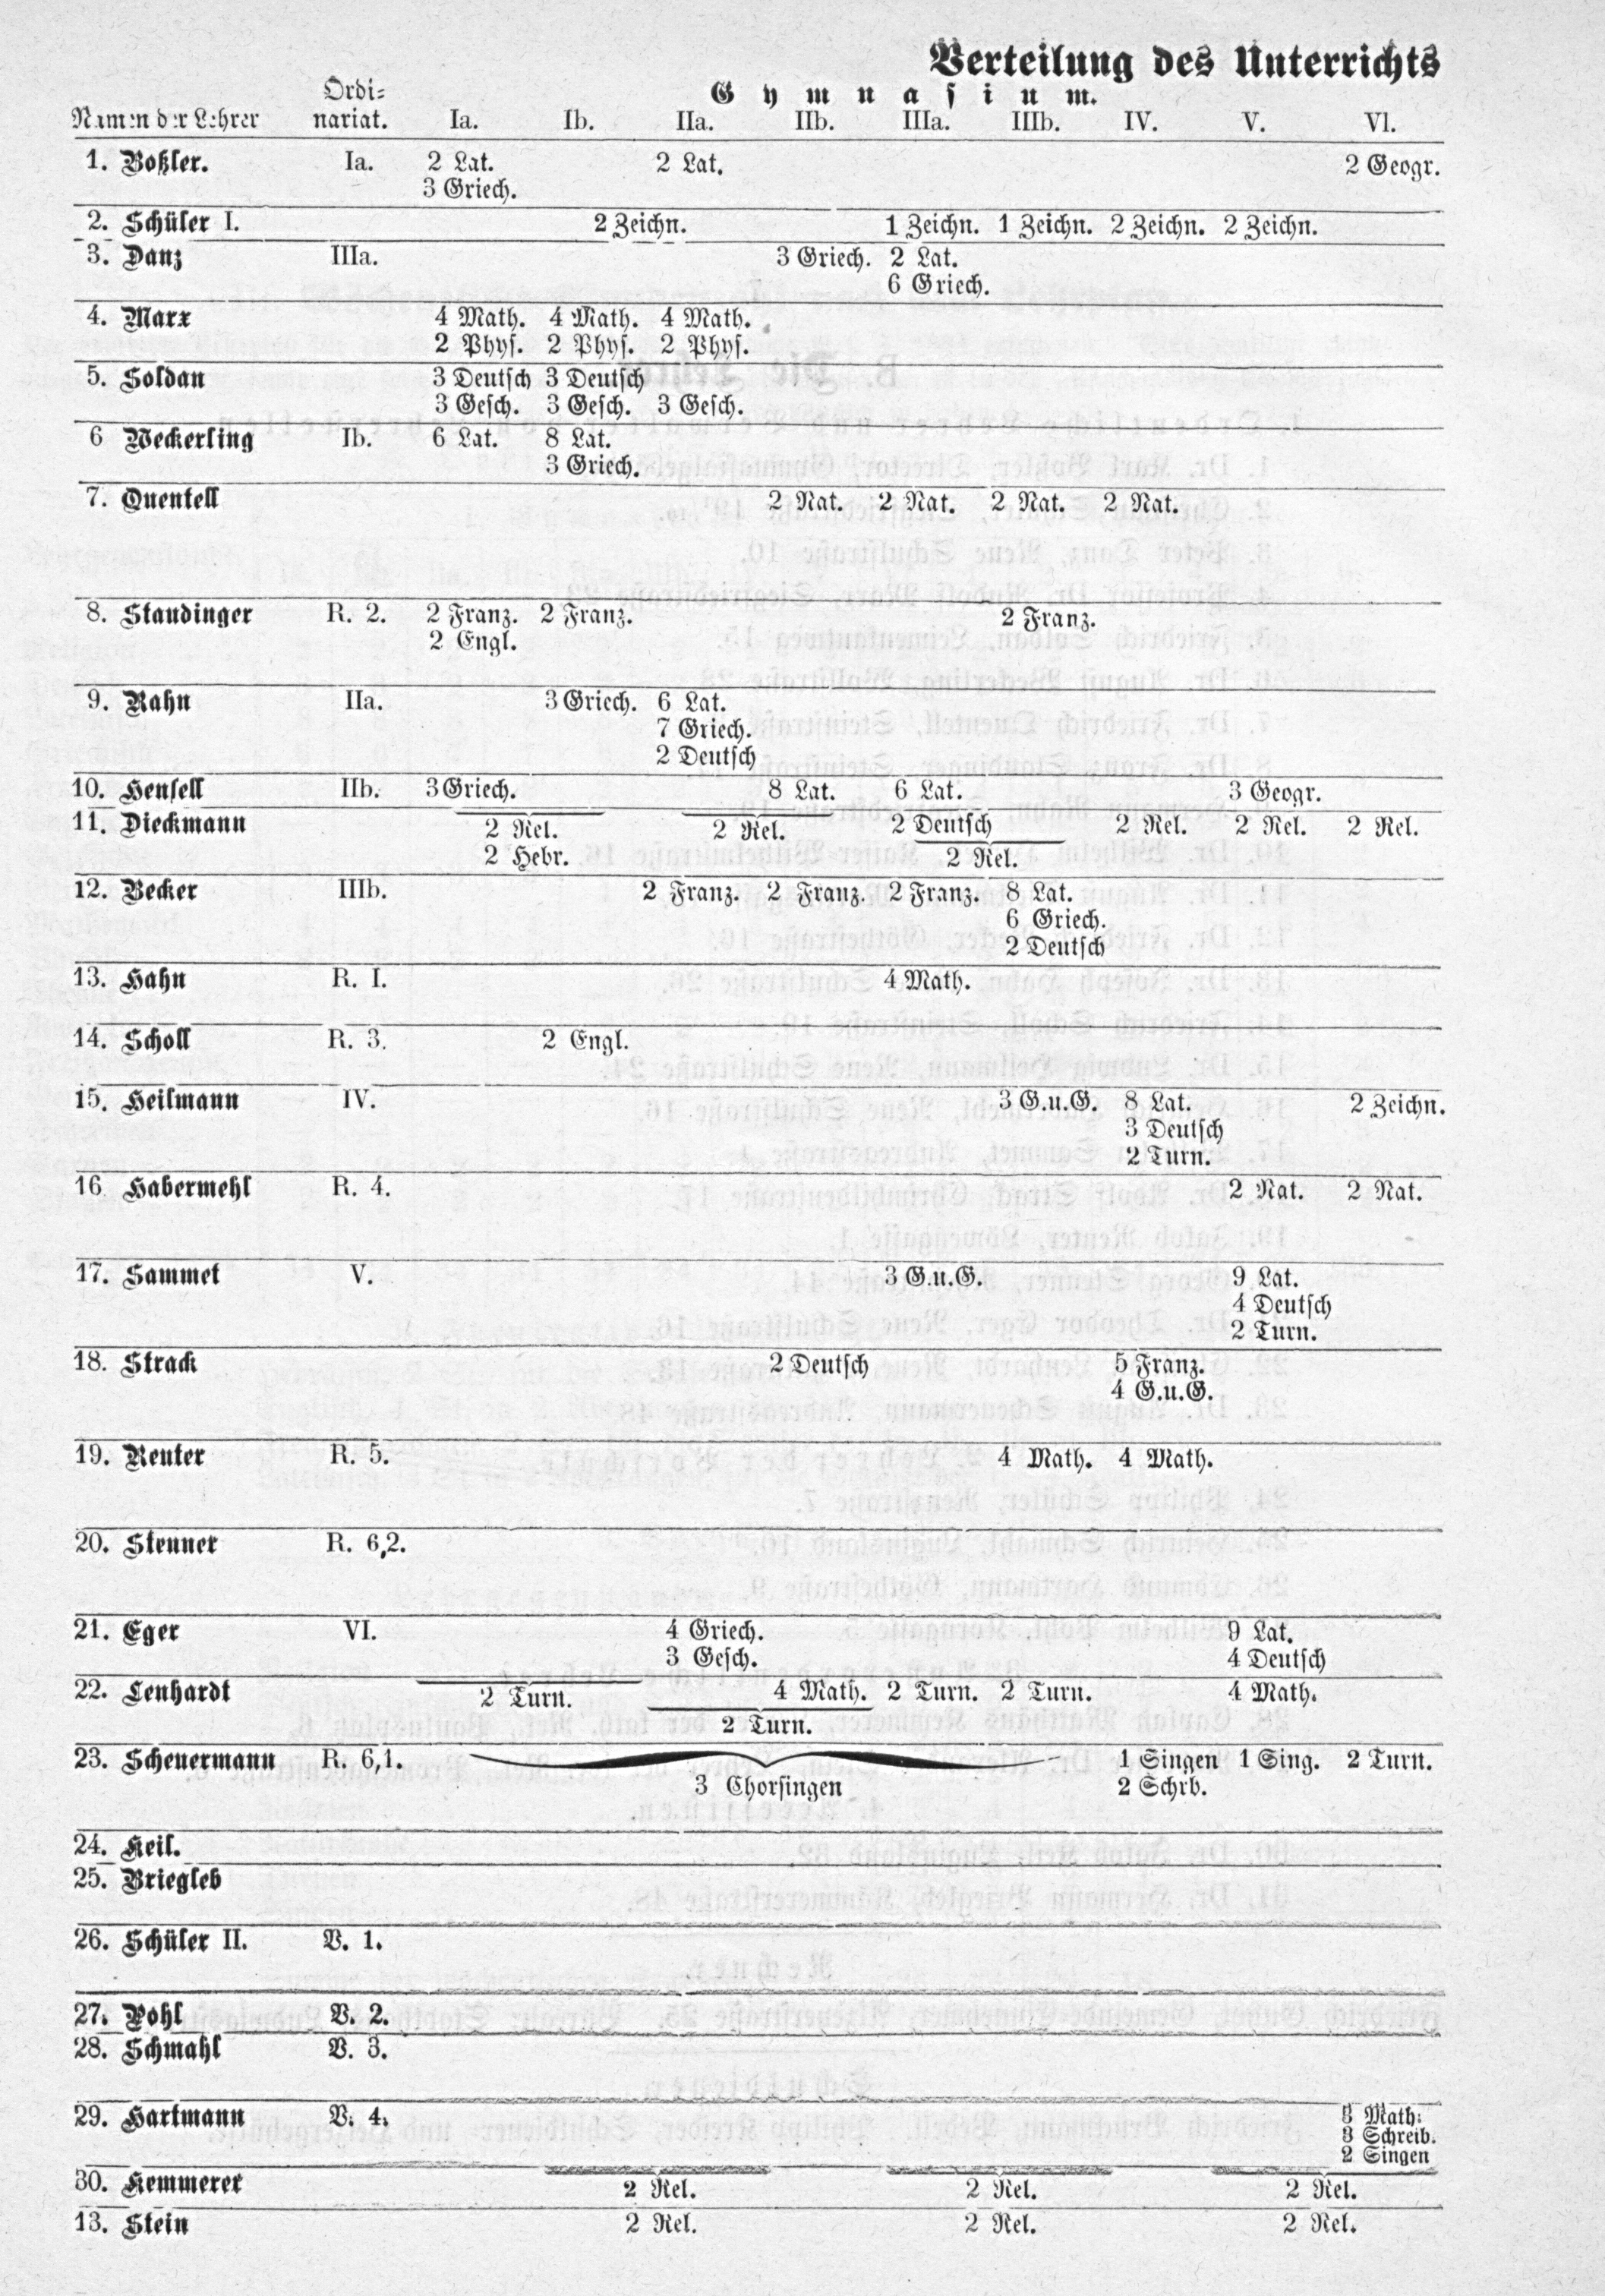 Verteilung des Unterrichts
Gymnasium.
Namen der Lehrer Ordi-
nariat. Ia. Ib. IIa. IIb. IIIa. IIIb. IV. V. VI.
1. Boßler. Ia. 2 Lat. 2 Lat. 2 Geogr.
3 Griech.
2. Schüler I. 2 Zeichn. 1 Zeichn. 1 Zeichn. 2 Zeichn. 2 Zeichn.
3. Danz IIIa. 3 Griech. 2 Lat.
6 Griech.
4. Marx 4 Math. 4 Math. 4 Math.
2 Phys. 2 Phys. 2 Phys.
5. Soldan 3 Deutsch 3 Deutsch
3 Gesch. 3 Gesch. 3 Gesch.
6 Weckerling Ib. 6 Lat. 8 Lat.
3 Griech.
7. Quentell 2 Nat. 2 Nat. 2 Nat. 2 Nat.
8. Staudinger R. 2. 2 Franz. 2 Franz. 2 Franz.
2 Engl.
9. Rahn IIa. 3 Griech. 6 Lat.
7 Griech.
2 Deutsch
10. Hensell IIb. 3 Griech. 8 Lat. 6 Lat. 3 Geogr.
11. Dieckmann 2 Rel. 2 Rel. 2 Deutsch 2 Rel. 2 Rel. 2 Rel.
2 Hebr. 2 Rel.
12. Becker IIIb. 2 Franz. 2 Franz. 2 Franz. 8 Lat.
6 Griech.
2 Deutsch
13. Hahn R. I. 4 Math.
14. Scholl R. 3. 2 Engl.
15. Heilmann IV. 3 G.u.G. 8 Lat. 2 Zeichn.
3 Deutsch
2 Turn.
16. Habermehl R. 4. 2 Nat. 2 Nat.
17. Sammet V. 3 G.u.G. 9 Lat.
4 Deutsch
2 Turn.
18. Strack 2 Deutsch 5 Franz.
4 G.u.G.
19. Reuter R. 5. 4 Math. 4 Math.
20. Stenner R. 6,2.
21. Eger VI. 4 Griech. 9 Lat.
3 Gesch. 4 Deutsch
22. Lenhardt 2 Turn. 4 Math. 2 Turn. 2 Turn. 4 Math.
2 Turn.
23. Scheuermann R. 6,1. 1 Singen 1 Sing. 2 Turn.
3 Chorsingen 2 Schrb.
24. Keil.
25. Briegleb
26. Schüler II. V. 1.
27. Pohl V. 2.
28. Schmahl V. 3.
29. Hartmann V. 4. 3 Math.
3 Schreib.
2 Singen
30. Kemmerer 2 Rel. 2 Rel. 2 Rel.
13. Stein 2 Rel. 2 Rel. 2 Rel.